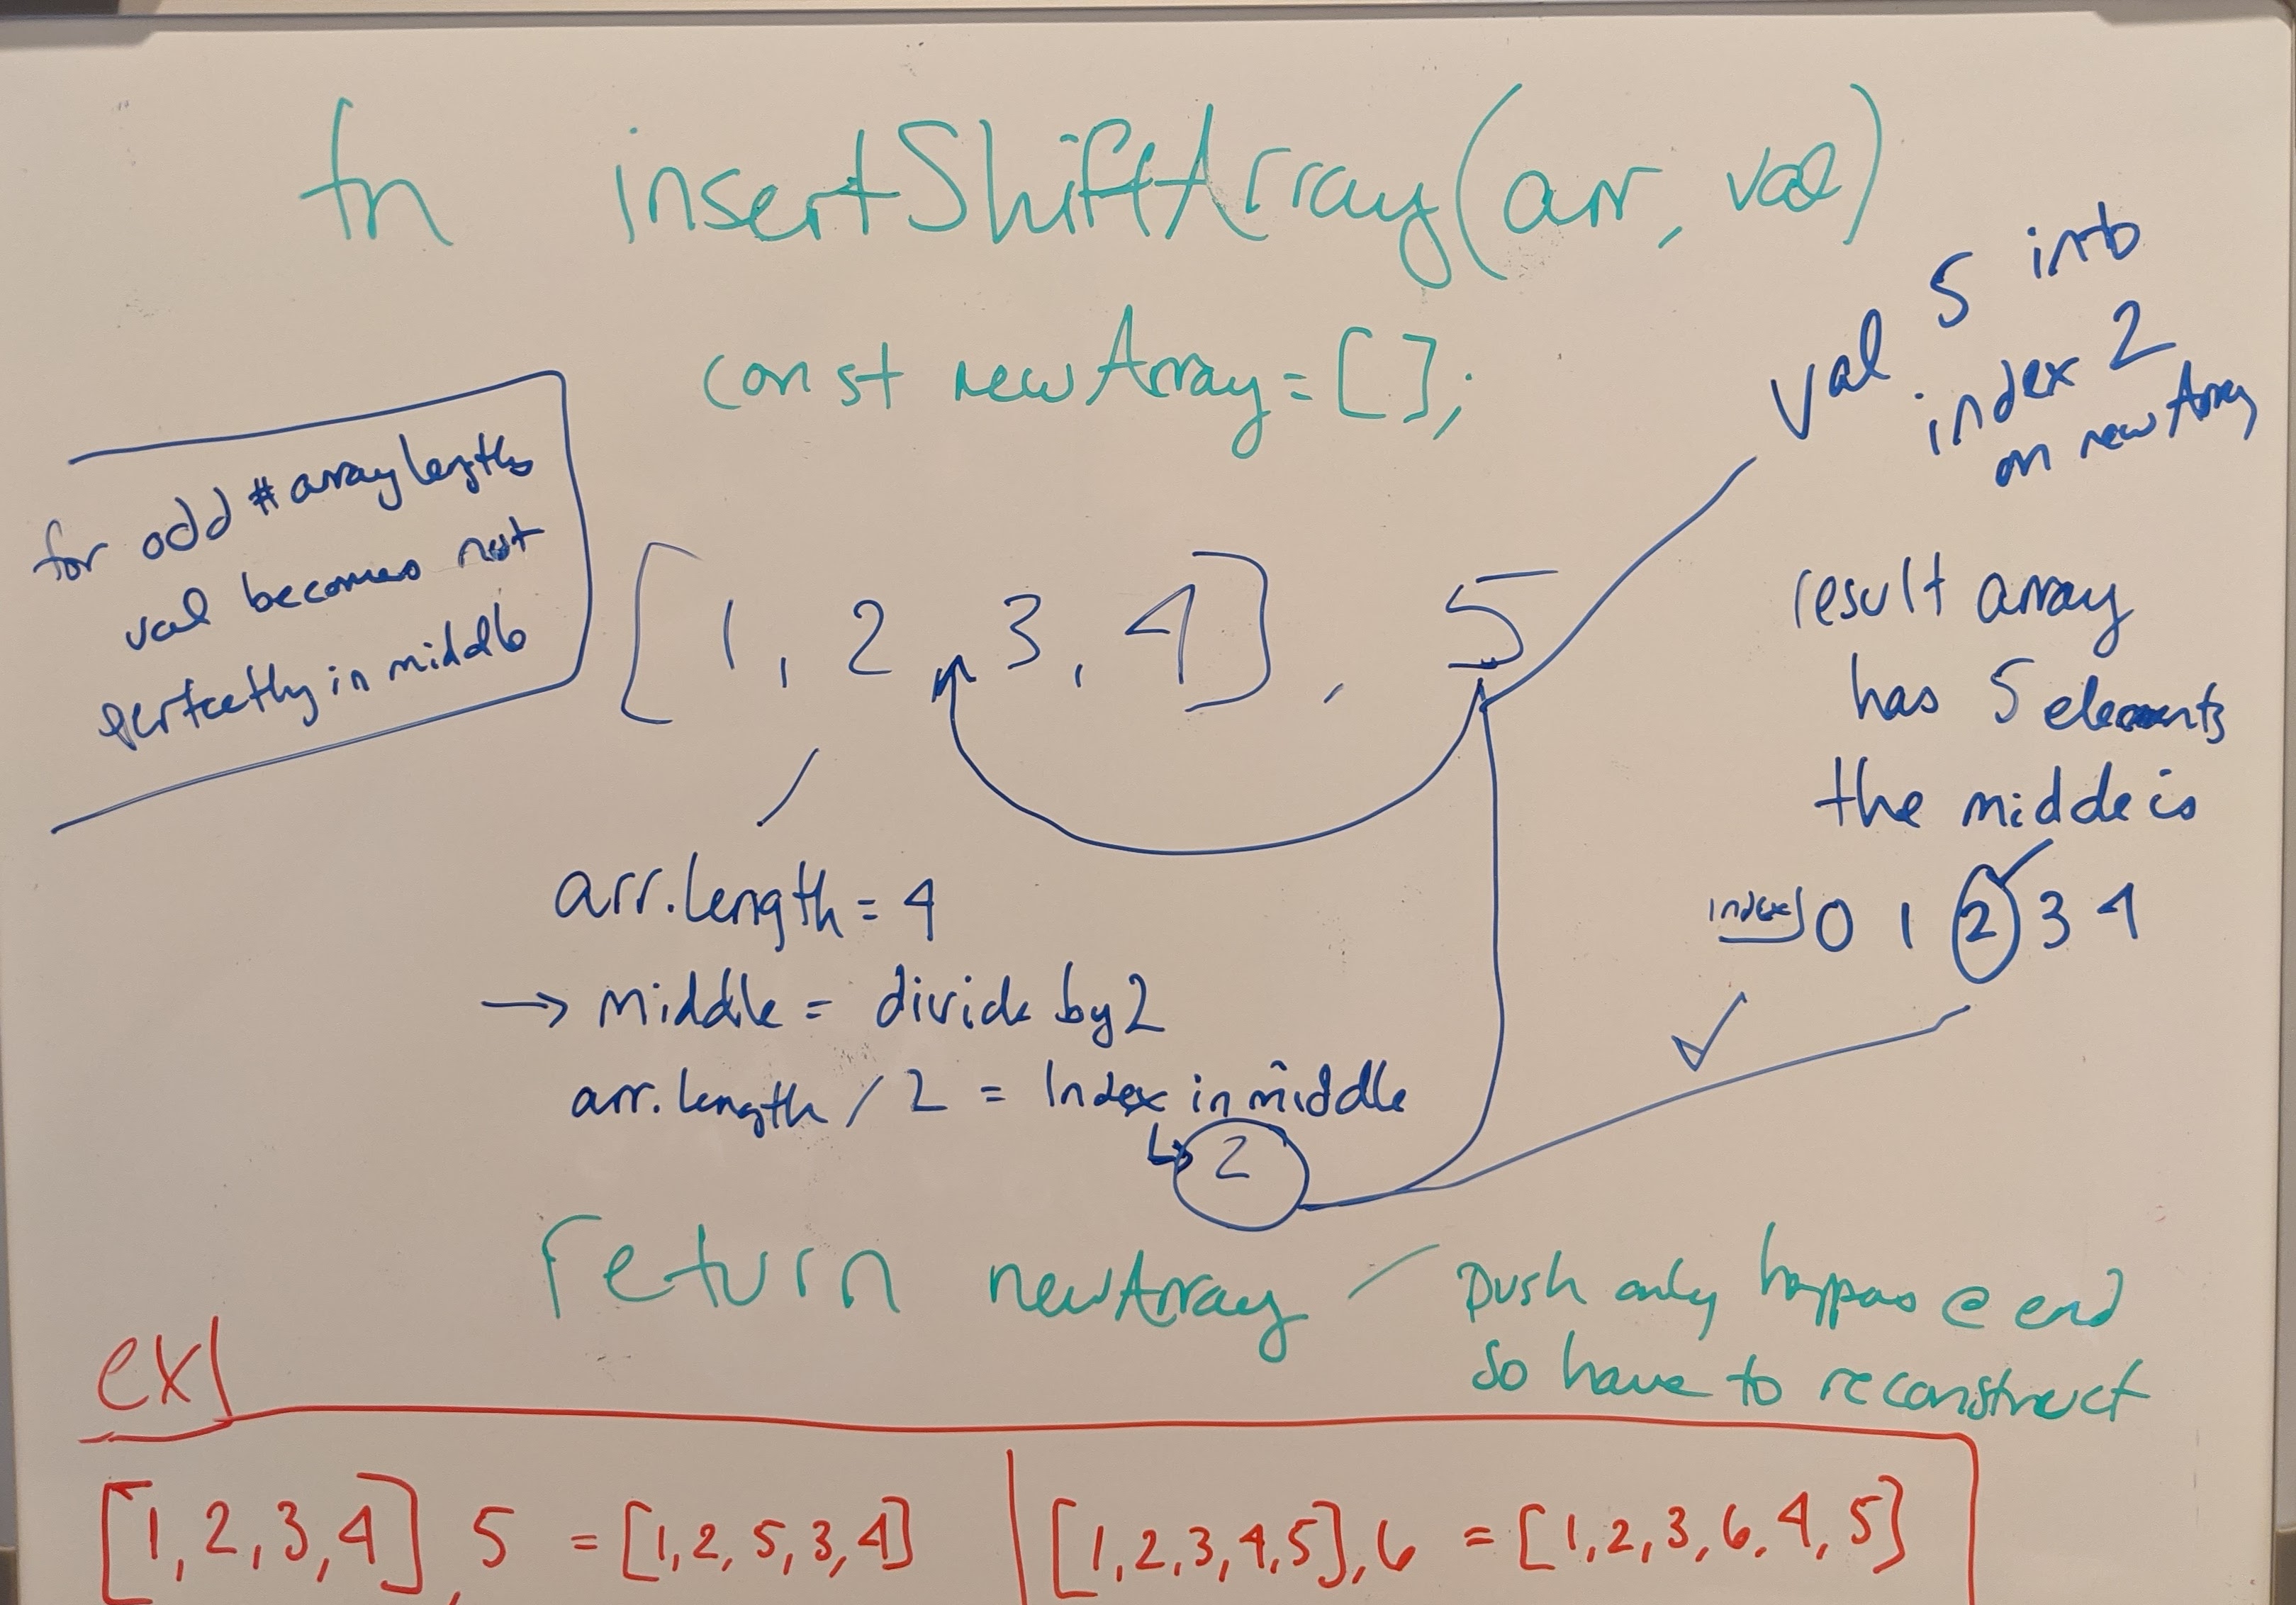 fn insertShiftArray(arr, val)
const newArray = [];
val 5 into
index 2
on newArray
for odd # array lengths
val becomes not
perfectly in middle
[1, 2, 3, 4], 5
result array
has 5 elements
the middle is
index 0 1 2 3 4
arr.length = 4
→ middle = divide by 2
arr.length / 2 = Index in middle
↳ 2
return newArray
push only happens @ end
so have to reconstruct
ex
[1, 2, 3, 4], 5 = [1, 2, 5, 3, 4]
[1, 2, 3, 4, 5], 6 = [1, 2, 3, 6, 4, 5]